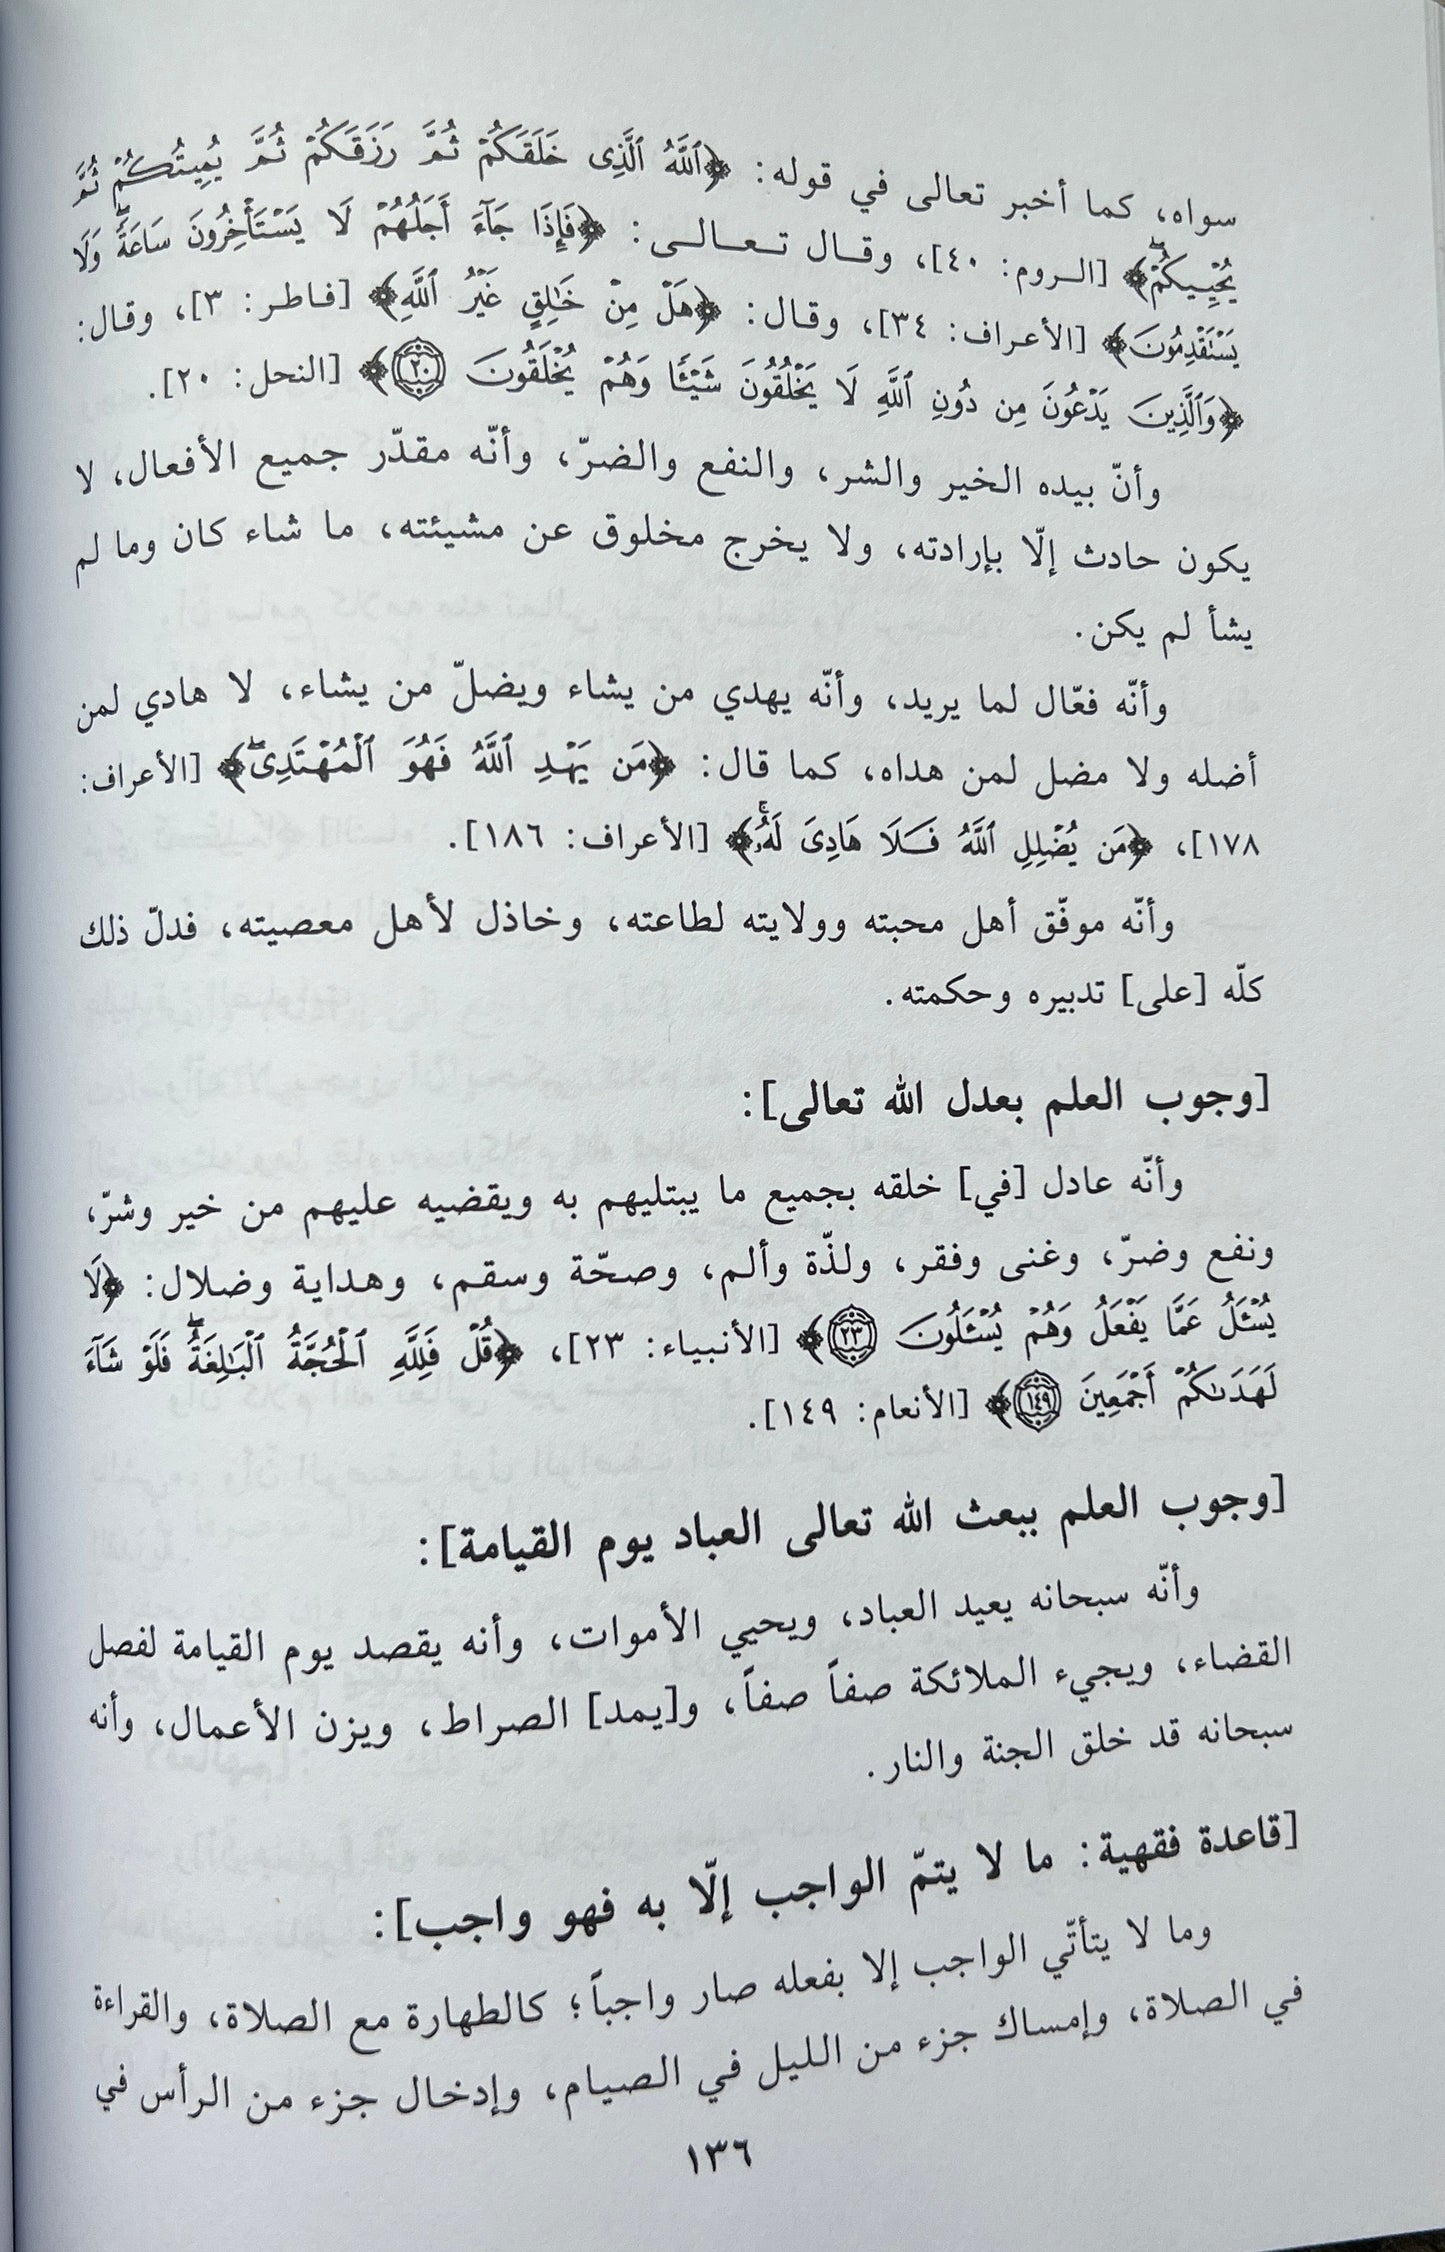 سواه، كما أخبر تعالى في قوله: ﴿ٱللَّهُ ٱلَّذِى خَلَقَكُمْ ثُمَّ رَزَقَكُمْ ثُمَّ يُمِيتُكُمْ ثُمَّ
يُحْيِيكُمْ ۖ﴾ [الروم: ٤٠]، وقال تعالى: ﴿فَإِذَا جَآءَ أَجَلُهُمْ لَا يَسْتَأْخِرُونَ سَاعَةً ۖ وَلَا
يَسْتَقْدِمُونَ﴾ [الأعراف: ٣٤]، وقال: ﴿هَلْ مِنْ خَٰلِقٍ غَيْرُ ٱللَّهِ﴾ [فاطر: ٣]، وقال:
﴿وَٱلَّذِينَ يَدْعُونَ مِن دُونِ ٱللَّهِ لَا يَخْلُقُونَ شَيْـًٔا وَهُمْ يُخْلَقُونَ ٢٠﴾ [النحل: ٢٠].
وأنّ بيده الخير والشر، والنفع والضرّ، وأنّه مقدّر جميع الأفعال، لا
يكون حادث إلّا بإرادته، ولا يخرج مخلوق عن مشيئته، ما شاء كان وما لم
يشأ لم يكن.
وأنّه فعّال لما يريد، وأنّه يهدي من يشاء ويضلّ من يشاء، لا هادي لمن
أضله ولا مضل لمن هداه، كما قال: ﴿مَن يَهْدِ ٱللَّهُ فَهُوَ ٱلْمُهْتَدِى ۖ﴾ [الأعراف:
١٧٨]، ﴿مَن يُضْلِلِ ٱللَّهُ فَلَا هَادِىَ لَهُۥ ۚ﴾ [الأعراف: ١٨٦].
وأنّه موفّق أهل محبته وولايته لطاعته، وخاذل لأهل معصيته، فدلّ ذلك
كلّه [على] تدبيره وحكمته.
[وجوب العلم بعدل الله تعالى]:
وأنّه عادل [في] خلقه بجميع ما يبتليهم به ويقضيه عليهم من خير وشرّ،
ونفع وضرّ، وغنى وفقر، ولذّة وألم، وصحّة وسقم، وهداية وضلال: ﴿لَا
يُسْـَٔلُ عَمَّا يَفْعَلُ وَهُمْ يُسْـَٔلُونَ ٢٣﴾ [الأنبياء: ٢٣]، ﴿قُلْ فَلِلَّهِ ٱلْحُجَّةُ ٱلْبَٰلِغَةُ ۖ فَلَوْ شَآءَ
لَهَدَىٰكُمْ أَجْمَعِينَ ١٤٩﴾ [الأنعام: ١٤٩].
[وجوب العلم ببعث الله تعالى العباد يوم القيامة]:
وأنّه سبحانه يعيد العباد، ويحيي الأموات، وأنه يقصد يوم القيامة لفصل
القضاء، ويجيء الملائكة صفاً صفاً، و[يمد] الصراط، ويزن الأعمال، وأنه
سبحانه قد خلق الجنة والنار.
[قاعدة فقهية: ما لا يتمّ الواجب إلّا به فهو واجب]:
وما لا يتأتّي الواجب إلا بفعله صار واجباً؛ كالطهارة مع الصلاة، والقراءة
في الصلاة، وإمساك جزء من الليل في الصيام، وإدخال جزء من الرأس في
١٣٦